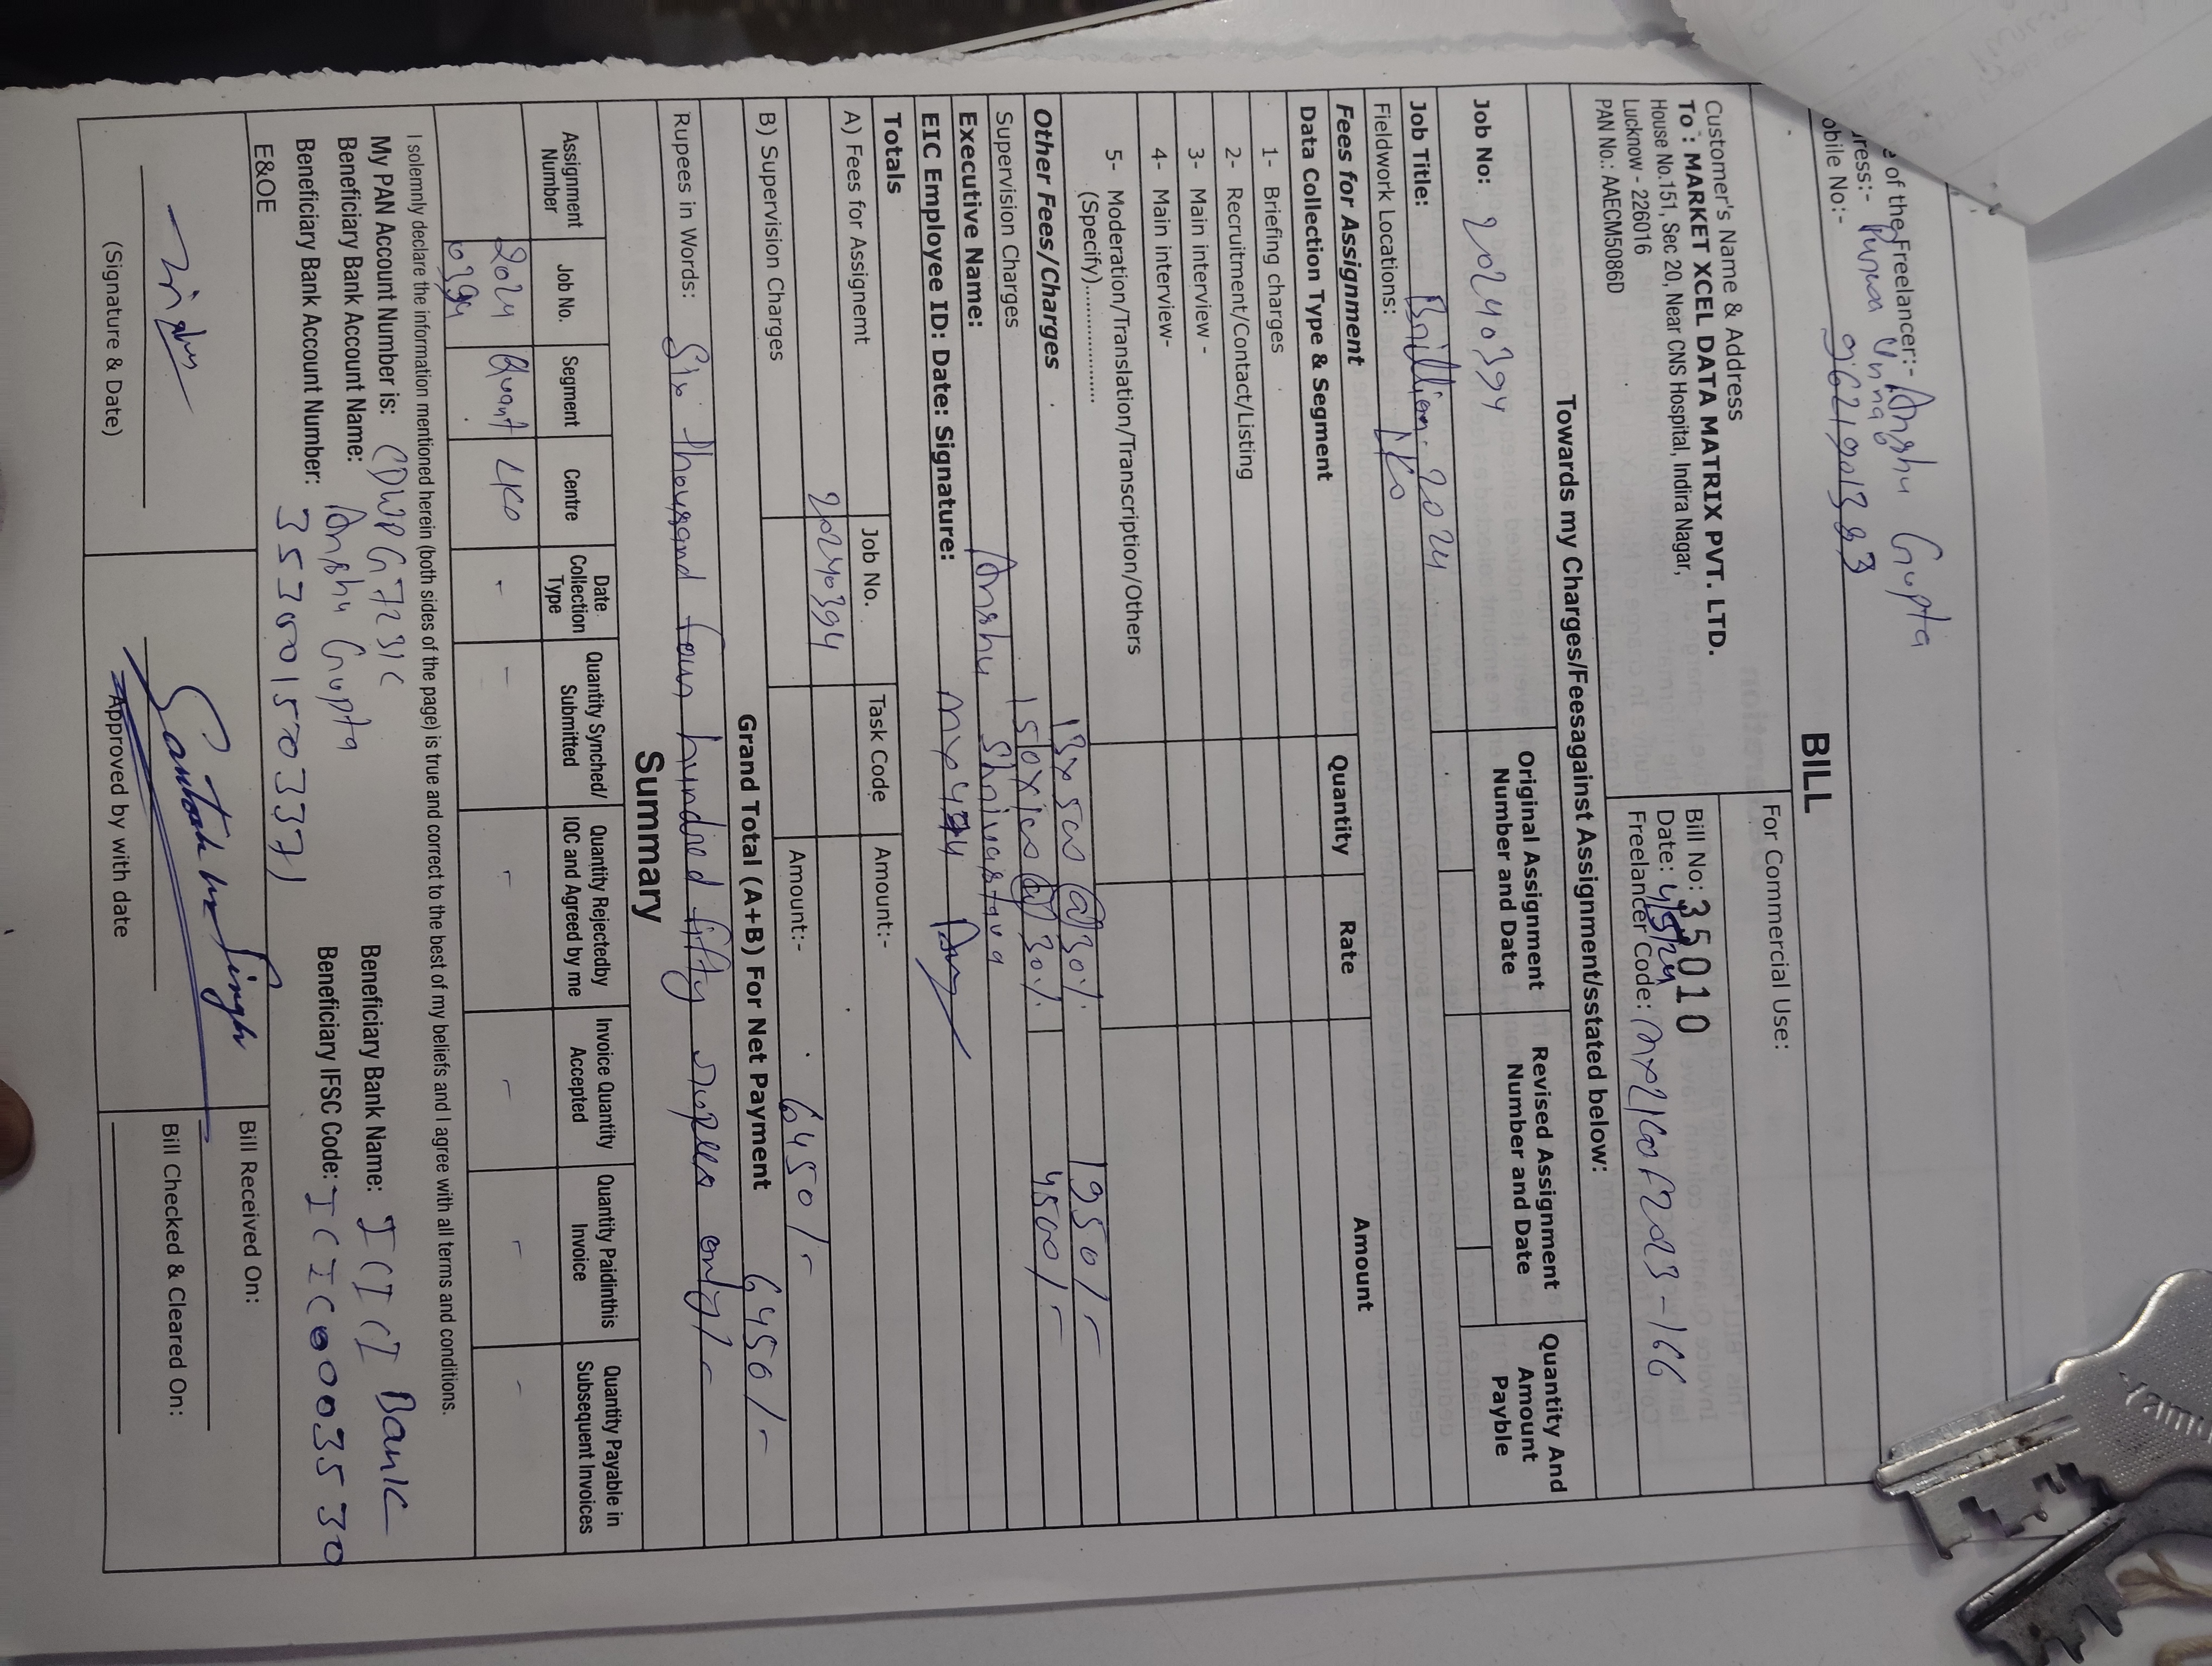 e of the Freelancer:- Anshu Gupta
ress:- Purwa Unnao
obile No:- 9162190133
BILL
For Commercial Use:
Customer's Name & Address
To : MARKET XCEL DATA MATRIX PVT. LTD.
House No.151, Sec 20, Near CNS Hospital, Indira Nagar,
Lucknow - 226016
PAN No.: AAECM5086D
Bill No: 35010
Date: 4/5/24
Freelancer Code:
Towards my Charges/Feesagainst Assignment/sstated below:
Job No: 20240394
Original Assignment Number and Date
Revised Assignment Number and Date
Quantity And Amount Payble
Job Title: Brillion 2024
Fieldwork Locations: LKO
Fees for Assignment
Data Collection Type & Segment
Quantity
Rate
Amount
1- Briefing charges
2- Recruitment/Contact/Listing
3- Main interview -
4- Main interview-
5- Moderation/Translation/Transcription/Others
(Specify)................
Other Fees/Charges
13x500 @ 30% 1950/-
Supervision Charges 150x100 @ 30% 4500/-
Executive Name: Anshu Shrivastava
EIC Employee ID: Date: Signature:
Totals
Job No.
Task Code
Amount:-
A) Fees for Assignemt
20240394
B) Supervision Charges
Amount:- 6450/-
Grand Total (A+B) For Net Payment 6450/-
Rupees in Words: Six thousand four hundred fifty rupees only/-
Summary
Assignment Number
Job No.
Segment
Centre
Date Collection Type
Quantity Synched/ Submitted
Quantity Rejectedby IQC and Agreed by me
Invoice Quantity Accepted
Quantity Paidinthis Invoice
Quantity Payable in Subsequent Invoices
2024 0394 Quant LKO - - - - - -
I solemnly declare the information mentioned herein (both sides of the page) is true and correct to the best of my beliefs and I agree with all terms and conditions.
My PAN Account Number is: CDWPG7231C
Beneficiary Bank Name: ICICI Bank
Beneficiary Bank Account Name: Anshu Gupta
Beneficiary IFSC Code:
Beneficiary Bank Account Number: 353001503371
E&OE
Bill Received On:
Santosh kr Singh
Bill Checked & Cleared On:
(Signature & Date)
Approved by with date